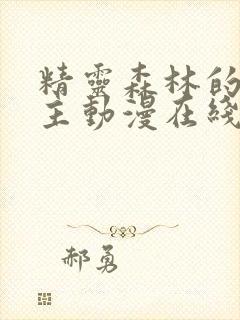 精靈森林的
主動漫在綫
郝勇